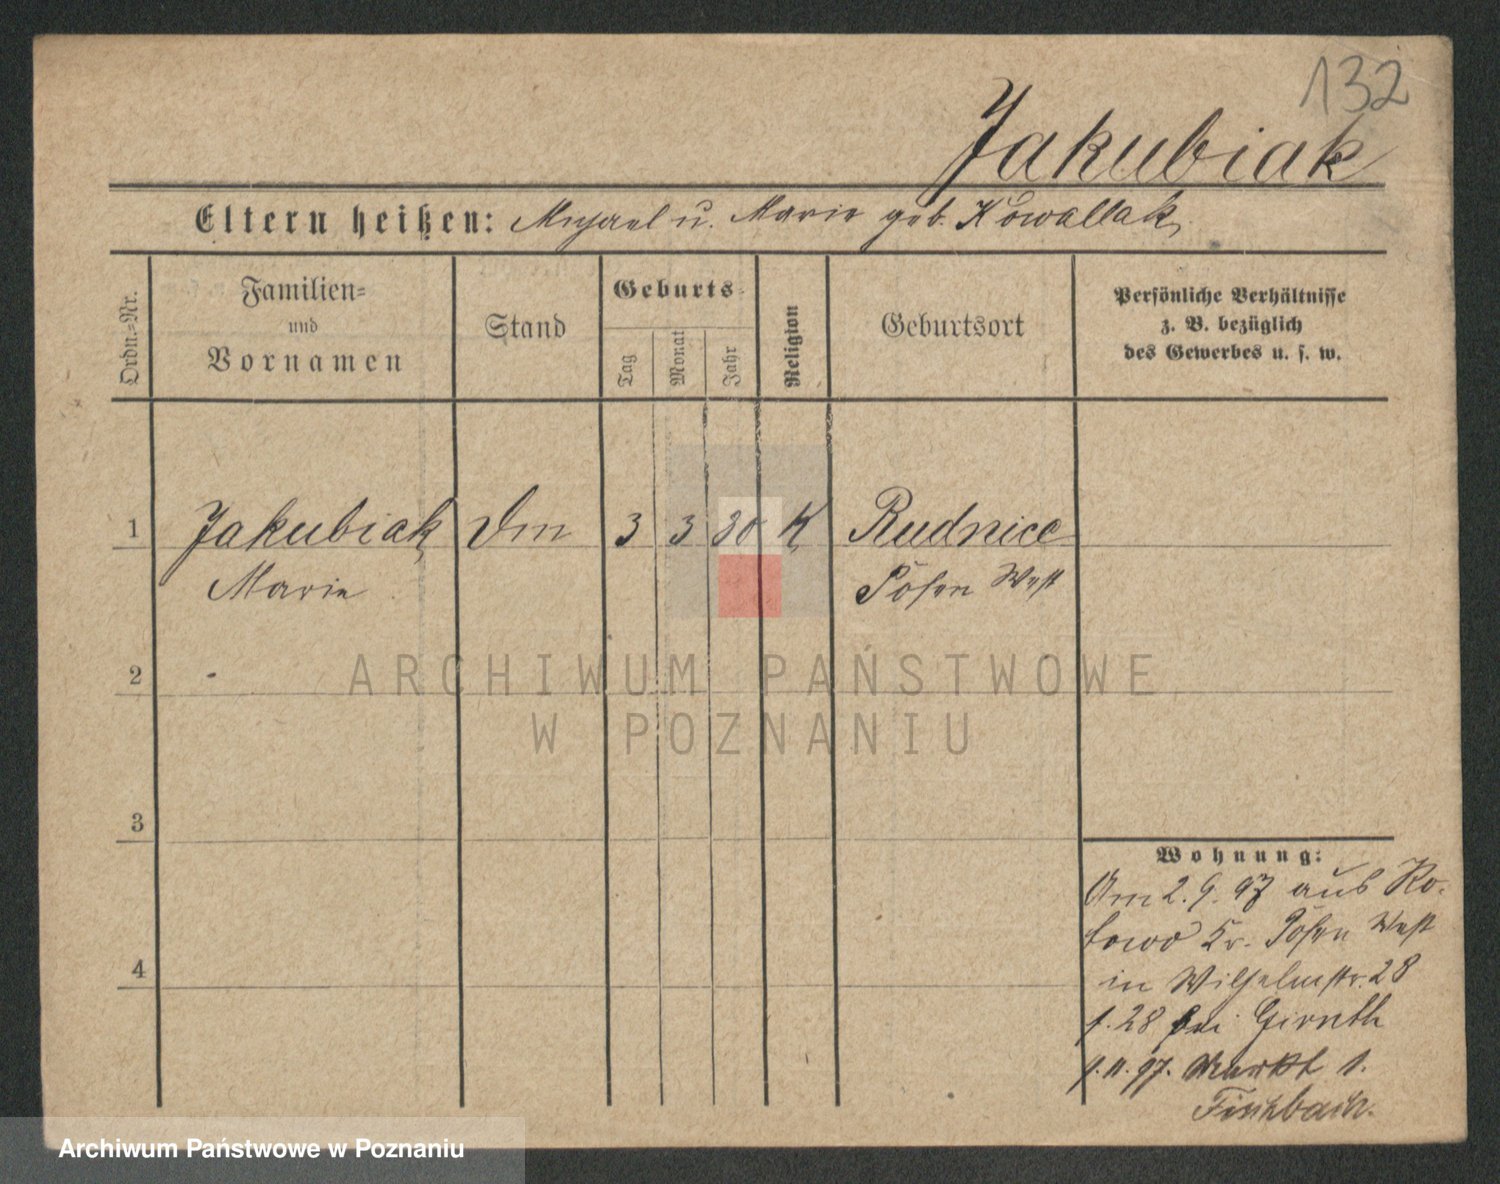 132
Jakubiak
Eltern heißen: Michael u. Marie geb. Kowallak
Ordn.-Nr.
Familien-
und
Vornamen
Stand
Geburts-
Tag
Monat
Jahr
Religion
Geburtsort
Persönliche Verhältnisse
z. B. bezüglich
des Gewerbes u. s. w.
1 Jakubiak 3 3 80 K Rudnice
Marie Posen West
2
3
4
Wohnung:
Am 2.9.97 aus Ro-
kowo Kr. Posen West
in Wilhelmstr. 28
bei
1.11.97. Markt 1.
Fischbach.
ARCHIWUM PAŃSTWOWE
W POZNANIU
Archiwum Państwowe w Poznaniu